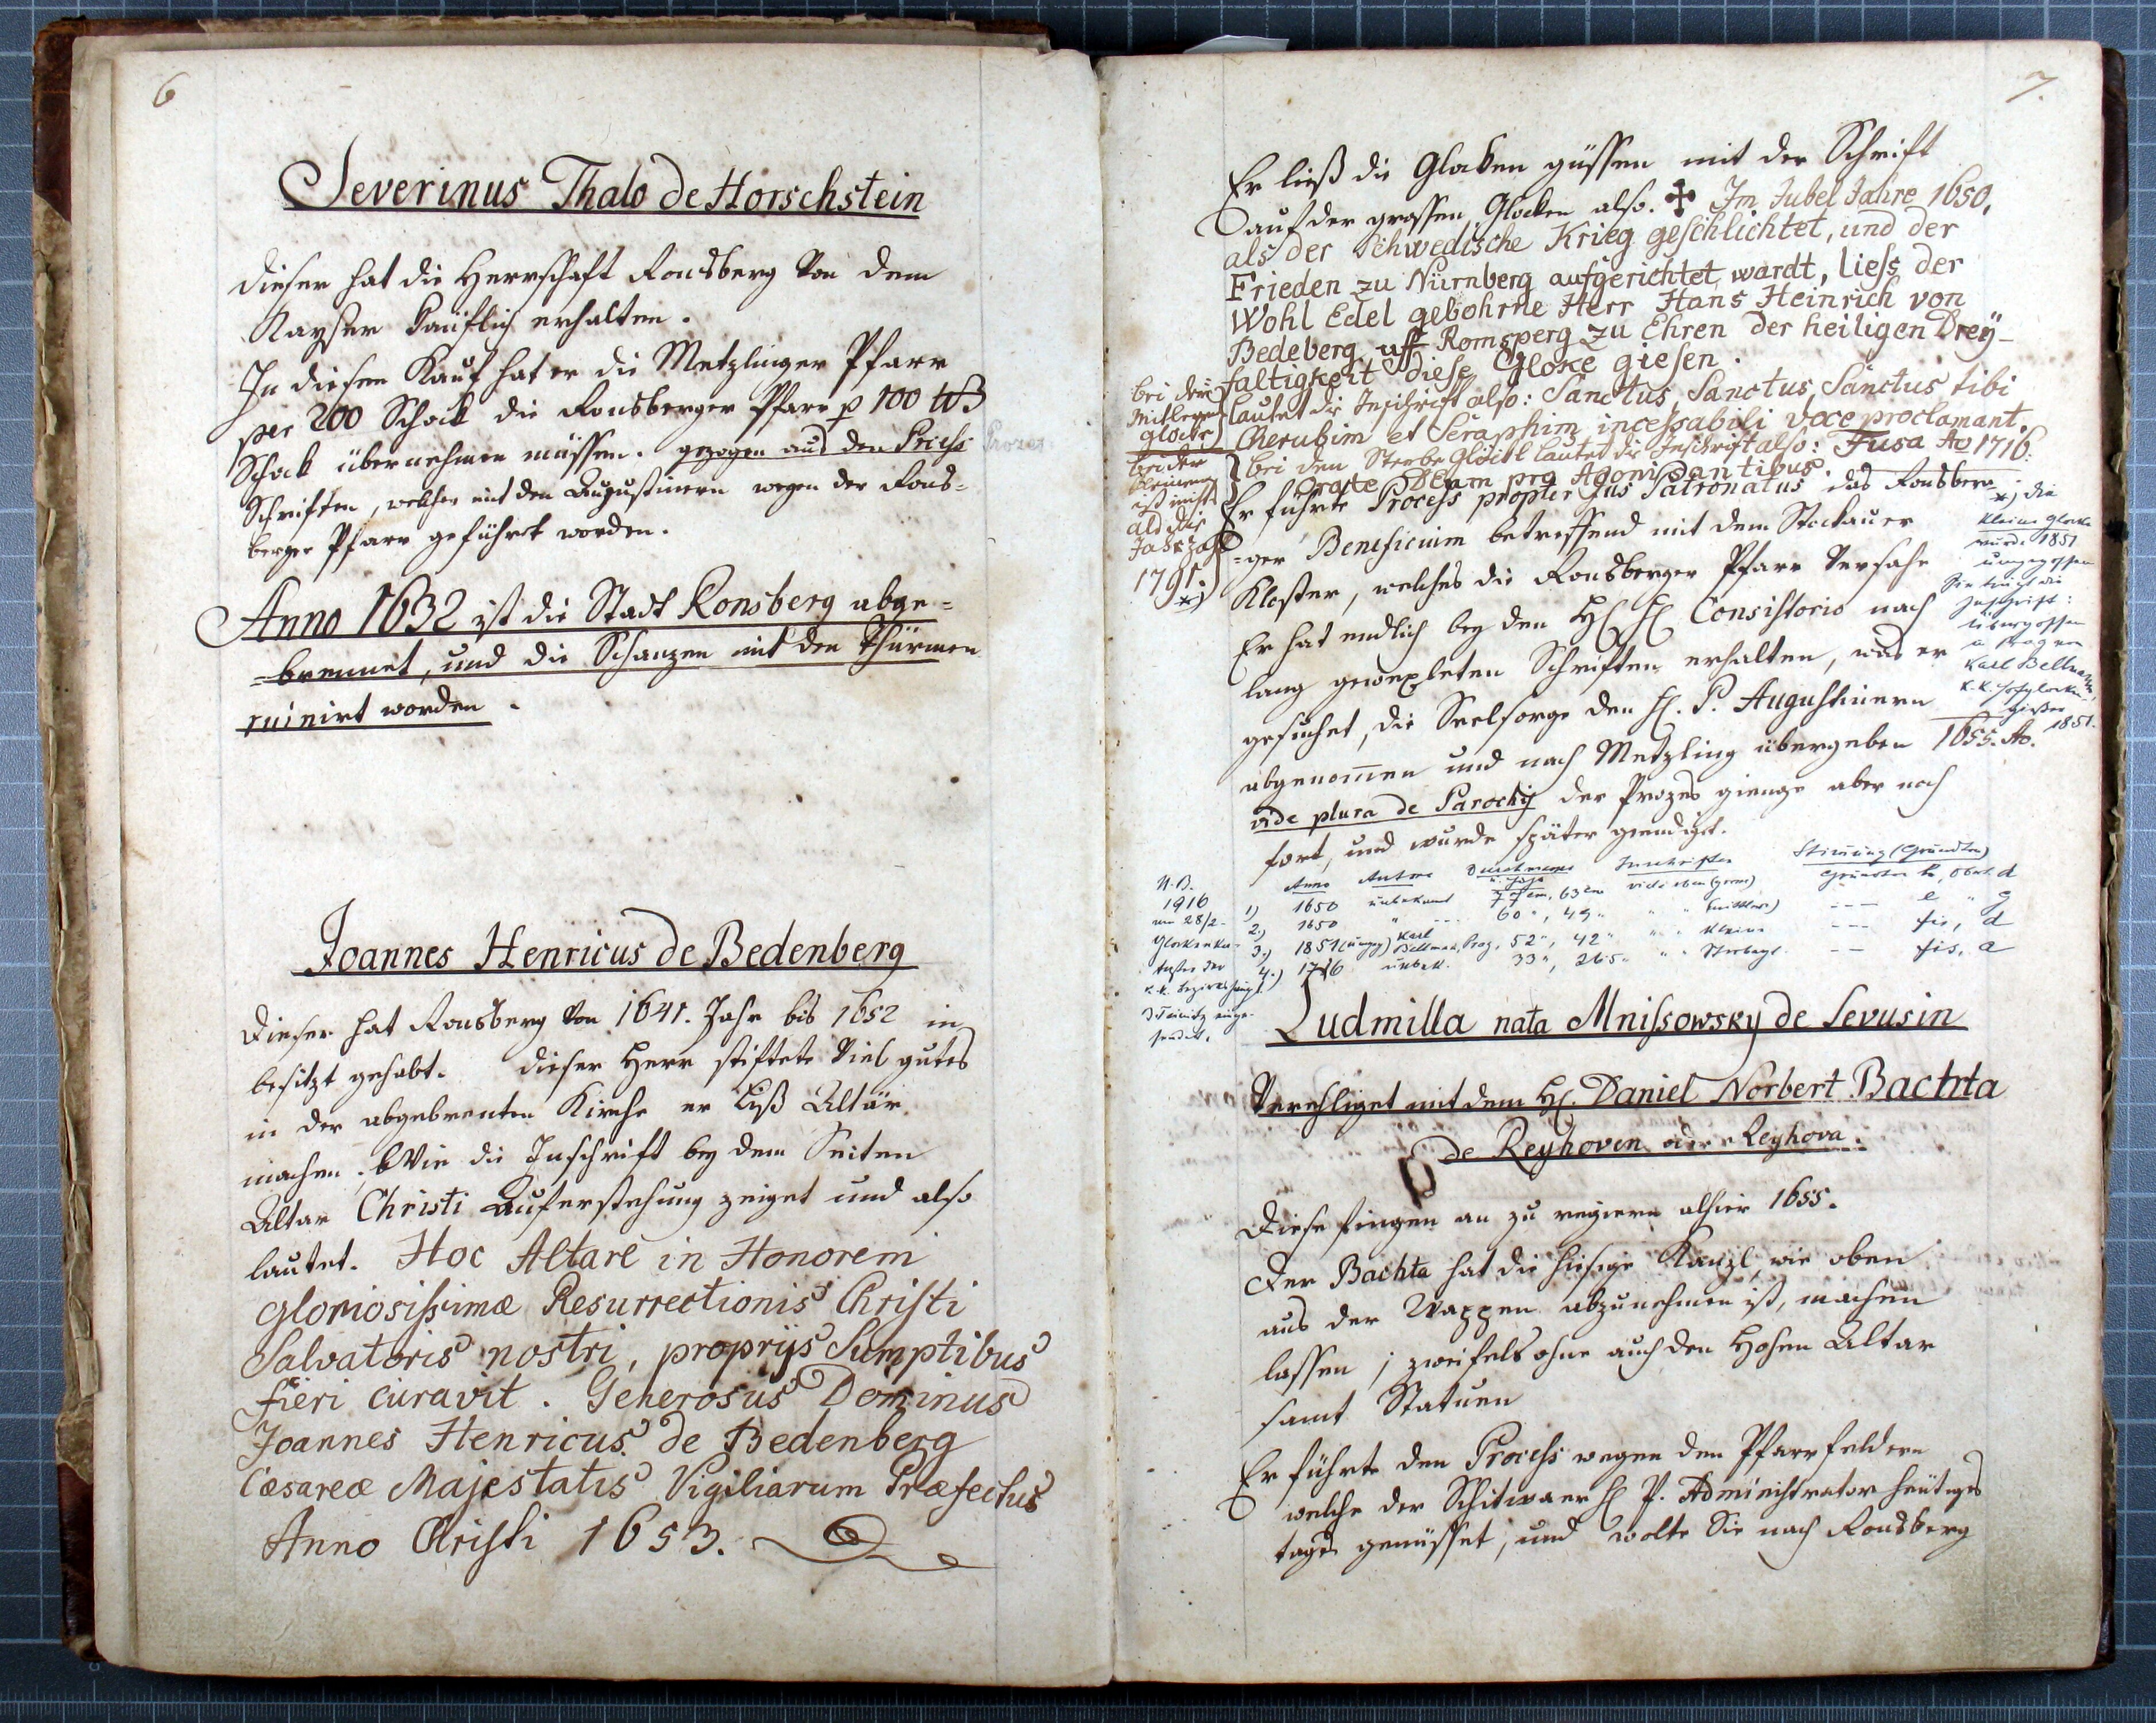 6
Severinus Thalo de Horschstein
Dieser hat die Herrschaft Ronsberg von dem
Kayser käuflich erhalten.
In diesen Kauf hat er die Metzlinger Pfarr
per 200 Schock die Ronsberger Pfarr p 100
Schock übernehmen müssen. gezogen aus den Process
Schriften, welcher mit den Augustinern wegen der Rons=
berger Pfarr geführt worden.
Anno 1632 ist die Stadt Ronsberg abge=
=brennet, und die Schanzen mit den Thürmen
ruinirt worden.
Joannes Henricus de Bedenberg
Dieser hat Ronsberg von 1641. Jahr bis 1652 in
besitzt gehabt. Dieser Herr stiftete viel gutes
in der abgebrenten Kirche er ließ Altär
machen, Wie die Inschrift bey dem Seiten
Altar Christi Auferstehung zeiget und also
lautet. Hoc Altare in Honorem
gloriosissimæ Resurrectionis Christi
Salvatoris nostri, proprijs Sumptibus
fieri curavit. Generosus Dominus
Joannes Henricus de Bedenberg
Cæsareæ Majestatis Vigiliarum Præfectus
Anno Christi 1653.
7.
Er ließ die Glocken güssen mit der Schrift
auf der grossen Glocken also. ✠ Im Jubel Jahre 1650,
als der Schwedische Krieg geschlichtet, und der
Frieden zu Nürnberg aufgerichtet wardt, liess der
Wohl Edel gebohrne Herr Hans Heinrich von
Bedeberg uff Romsperg zu Ehren der heiligen Drey-
faltigkeit diese Gloke giesen.
bei der
Mitleren
Glocke
lautet die Inschrift also: Sanctus, Sanctus, Sanctus tibi
Cherubim et Seraphim incessabili voce proclamant.
bei der
kleinen
ist nichts
als die
Jahrzahl
1791.
*)
bei den Sterbe Glöckl lautet die Inschrift also: Fusa Ao 1716.
Orate Deum pro Agonisantibus.
Er führte Process propter Jus Patronatus das Ronsber
=ger Beneficium betreffend mit dem Stockauer
Kloster, welches die Ronsberger Pfarr versahe
Er hat endlich bey den Consistorio nach
lang gewexleten Schriften erhalten, was er
gesuchet, die Seelsorge den H. P. Augustinern
abgenommen und nach Metzling übergeben 1655. Ao.
vide plura de Parochij der Prozes gienge aber noch
fort, und wurde später geendiget.
*) die
kleine Glocke
wurde 1851
umgegossen
Sie trägt die
Inschrift:
übergossen
v. Prag von
Karl Bellmann,
k. k. Hofglocken-
gießer
1851.
N.B.
1916
am 28/2.
k. k. Bezirkshaupt.
Anno
Inschriften
Stimmung (Grundton)
1) 1650 unbekannt 77 cm, 63 cm vide oben (grosse)
2.) 1650 60", 49" (mittlere) e " g
3.) 1851 (umgeg) Karl Bellmann, Prag, 52", 42" kleine fis, d
4.) 1716 unbek. 33", 26.5" Sterbegl. fis, a
Ludmilla nata Mnissowsky de Sevusin
Verehliget mit dem H. Daniel Norbert Bachta
de Reyhoven oder Reyhova.
Diese fingen an zu regieren alhier 1655.
Der Bachta hat die hiesige Kanzl, wie oben
aus der Wappen abzunehmen ist, machen
lassen; zweifels ohne auch den Hohen Altar
samt Statuen
Er führte den Process wegen den Pfarrfeldern
welche der Schitwaer H. P. Administrator heutiges
tags genüsset, und wolte sie nach Ronsberg